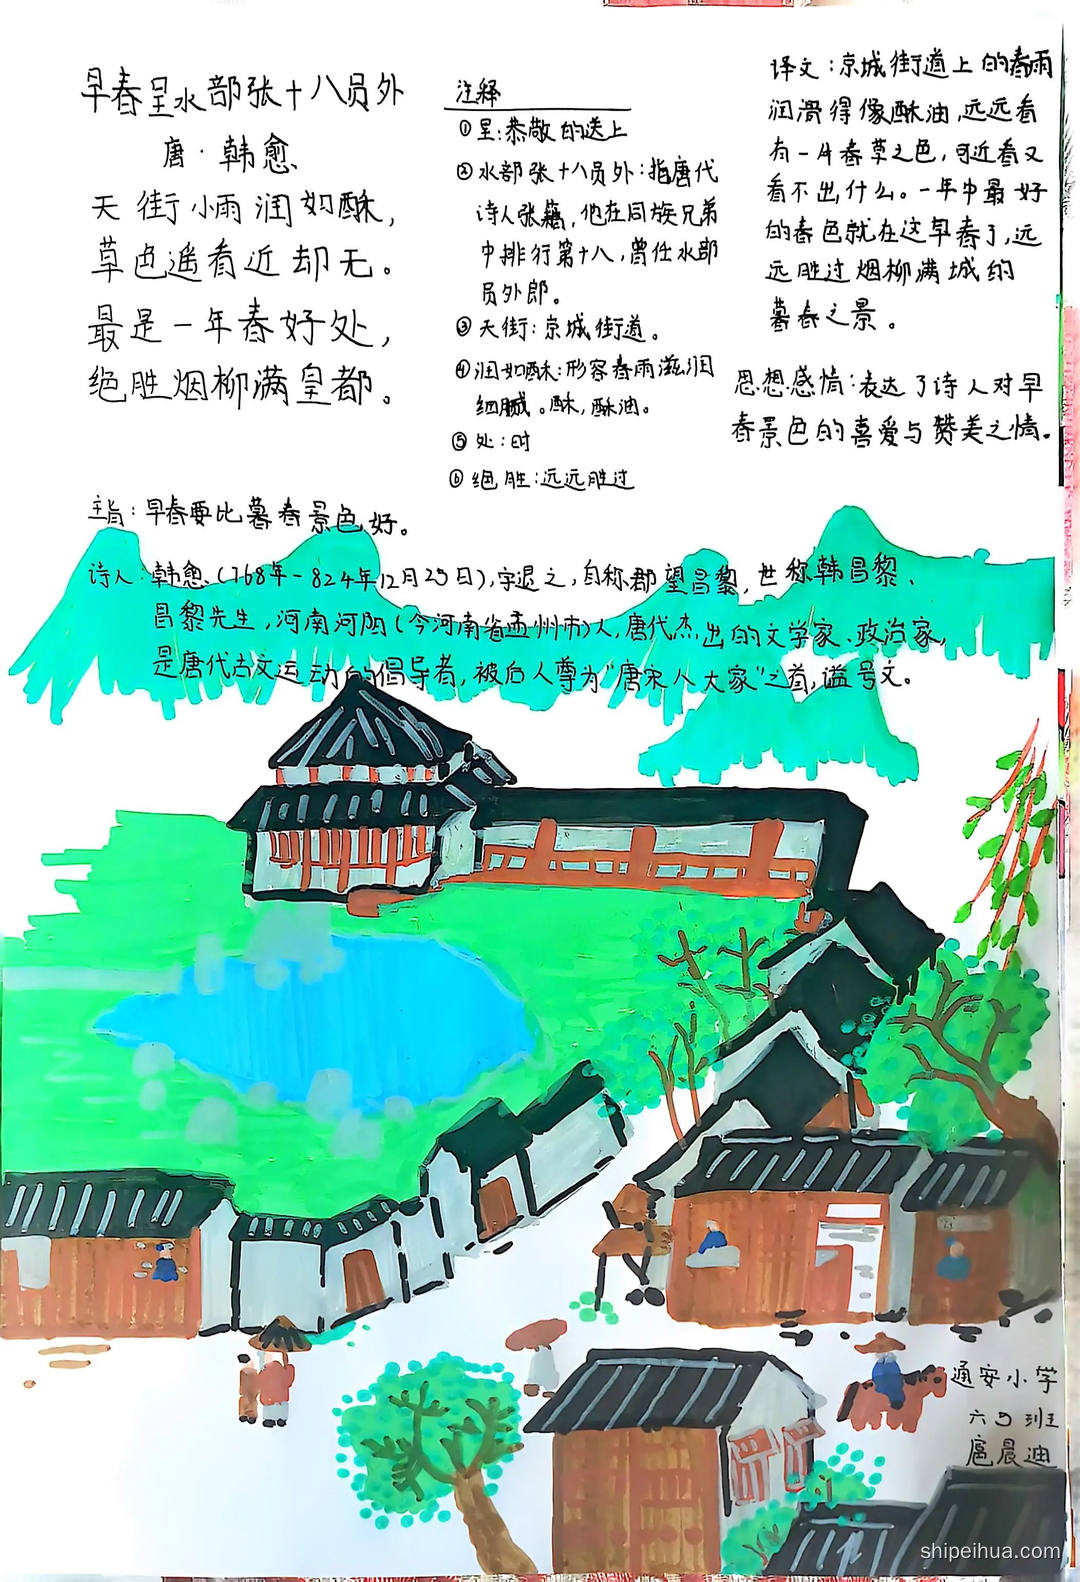 早春呈水部张十八员外
唐·韩愈
天街小雨润如酥，
草色遥看近却无。
最是一年春好处，
绝胜烟柳满皇都。
注释
①呈：恭敬的送上
②水部张十八员外：指唐代
诗人张籍，他在同族兄弟
中排行第十八，曾任水部
员外郎。
③天街：京城街道。
④润如酥：形容春雨滋润
细腻。酥，酥油。
⑤处：时
⑥绝胜：远远胜过
译文：京城街道上的春雨
润滑得像酥油，远远看
有一片春草之色，可近看又
看不出什么。一年中最好
的春色就在这早春了，远
远胜过烟柳满城的
暮春之景。
思想感情：表达了诗人对早
春景色的喜爱与赞美之情。
主旨：早春要比暮春景色好。
诗人：韩愈（768年-824年12月25日），字退之，自称郡望昌黎，世称韩昌黎、
昌黎先生，河南河阳（今河南省孟州市）人，唐代杰出的文学家、政治家，
是唐代古文运动的倡导者，被后人尊为“唐宋八大家”之首，谥号文。
通安小学
六5班
扈晨迪
shipeihua.com